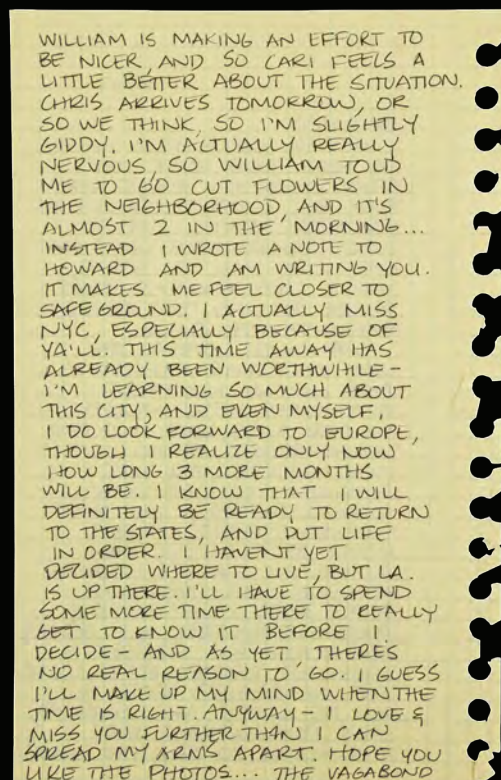 WILLIAM IS MAKING AN EFFORT TO
BE NICER, AND SO CARI FEELS A
LITTLE BETTER ABOUT THE SITUATION.
CHRIS ARRIVES TOMORROW, OR
SO WE THINK, SO I'M SLIGHTLY
GIDDY. I'M ACTUALLY REALLY
NERVOUS, SO WILLIAM TOLD
ME TO GO CUT FLOWERS IN
THE NEIGHBORHOOD, AND IT'S
ALMOST 2 IN THE MORNING...
INSTEAD I WROTE A NOTE TO
HOWARD AND AM WRITING YOU.
IT MAKES ME FEEL CLOSER TO
SAFE GROUND. I ACTUALLY MISS
NYC, ESPECIALLY BECAUSE OF
YA'LL. THIS TIME AWAY HAS
ALREADY BEEN WORTHWHILE-
I'M LEARNING SO MUCH ABOUT
THIS CITY, AND EVEN MYSELF.
I DO LOOK FORWARD TO EUROPE,
THOUGH I REALIZE ONLY NOW
HOW LONG 3 MORE MONTHS
WILL BE. I KNOW THAT I WILL
DEFINITELY BE READY TO RETURN
TO THE STATES, AND PUT LIFE
IN ORDER. I HAVENT YET
DECIDED WHERE TO LIVE, BUT L.A.
IS UP THERE. I'LL HAVE TO SPEND
SOME MORE TIME THERE TO REALLY
GET TO KNOW IT BEFORE I
DECIDE- AND AS YET THERE'S
NO REAL REASON TO GO. I GUESS
I'LL MAKE UP MY MIND WHEN THE
TIME IS RIGHT. ANYWAY- I LOVE &
MISS YOU FURTHER THAN I CAN
SPREAD MY ARMS APART. HOPE YOU
LIKE THE PHOTOS... THE VAGABOND